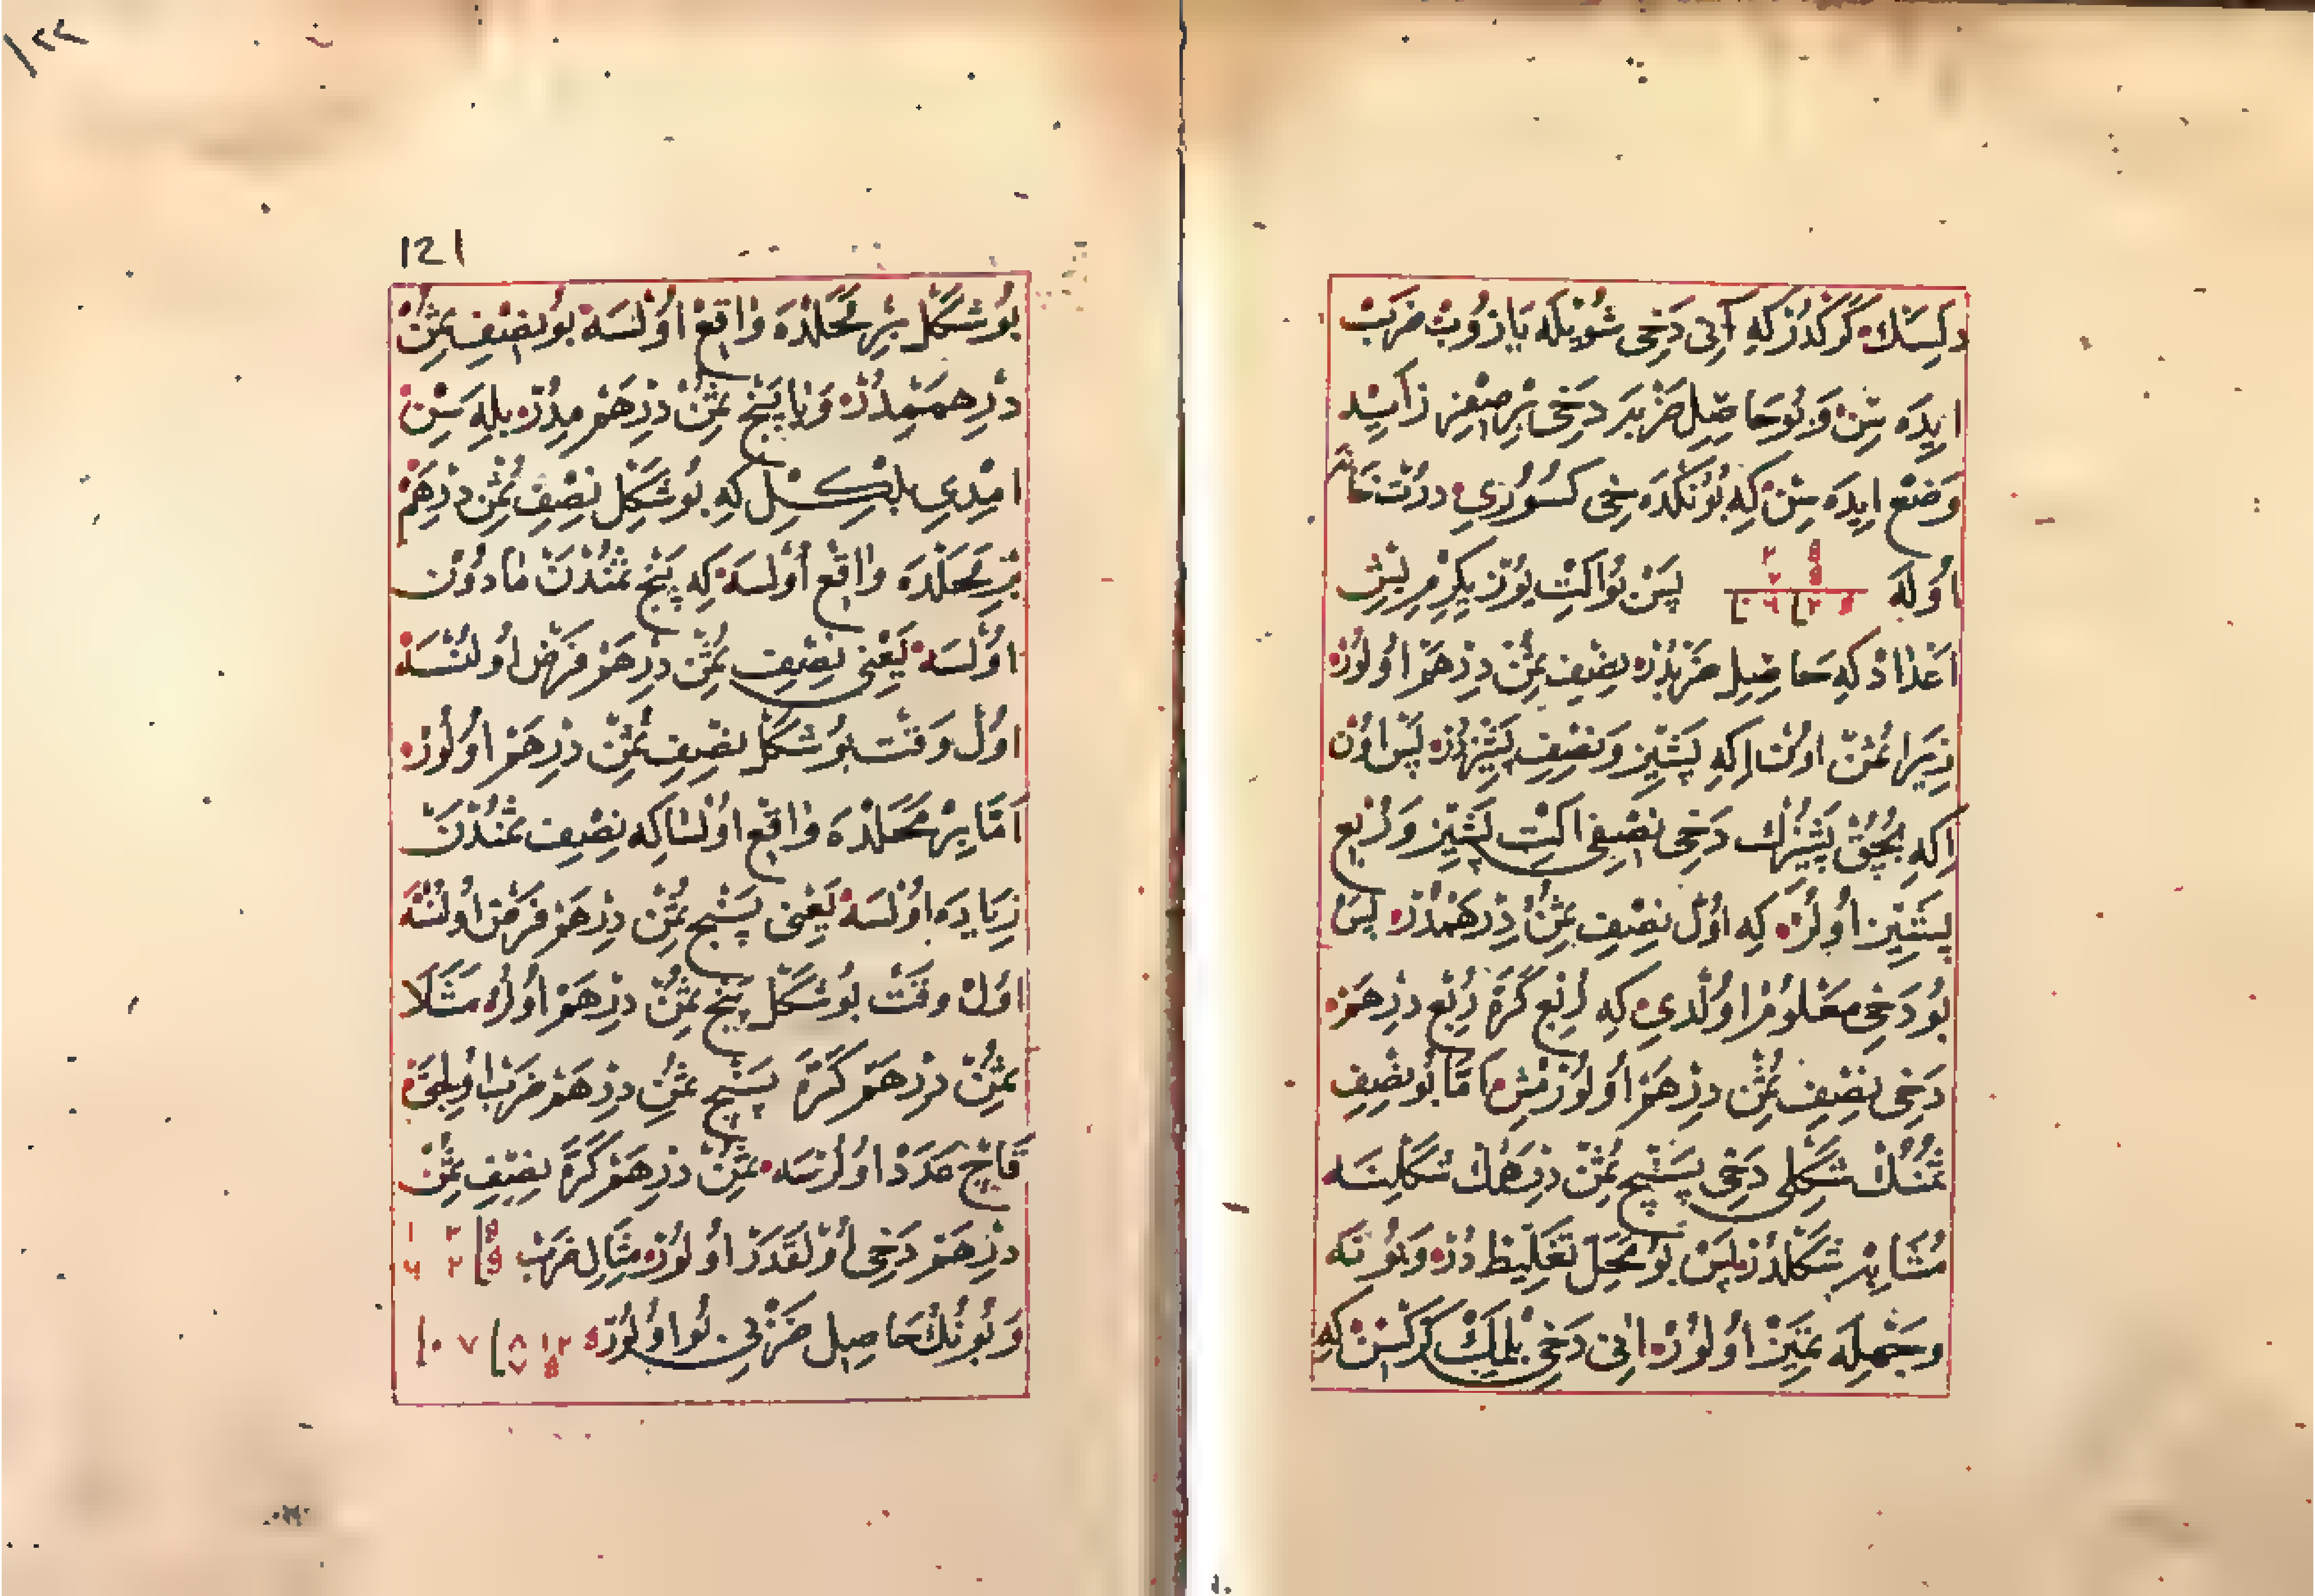 دلسك كركدر كه آنى دخى شويله يازوب ضرب
ايده سن و بو حاصل ضربه دخى بر صفر زائد
وضع ايده سن كه بونكده دخى كسورى درت خانه
اوله ٢ ٥ پس بو اكت يوز يكرمى بش
اعداد كه حاصل ضربدر نصف ثمن درهم اولور
زيرا ثمن اون ايكى پشيز و نصف پشيزدر پس اون
ايكى بچق پشيزك دخى نصفى الت پشيز و ربع
پشيز اولر كه اول نصف ثمن درهمدر پس
بو دخى معلوم اولدى كه ربع كرة ربع درهم
دخى نصف ثمن درهم اولورمش اما بو نصف
ثمنك شكلى دخى پنج ثمن درهمك شكلنه
مشابه شكلدر پس بو محل تغليظدر و بو نه
وجهله تميز اولور انى دخى بلمك كركسن كه
١٢٢
121
بو شكل بر محلده واقع اولسه بو نصف ثمن
درهمميدر ويا پنج ثمن درهمميدر بله سن
امدى بلكل كه بو شكل نصف ثمن درهم
بر محلده واقع اولسه كه پنج ثمندن مادون
اولسه يعنى نصف ثمن درهم فرض اولنسه
اول وقت بو شكل نصف ثمن درهم اولور
اما بر محلده واقع اولسا كه نصف ثمندن
زياده اولسه يعنى پنج ثمن درهم فرض اولنسه
اول وقت بو شكل پنج ثمن درهم اولر مثلا
ثمن درهم كرة پنج ثمن درهم ضرب اولجق
قاچ عدد اولرسه ثمن درهم كرة نصف ثمن
درهم دخى اولقدر اولور مثال ضرب
و بونك حاصل ضربى بو اولور